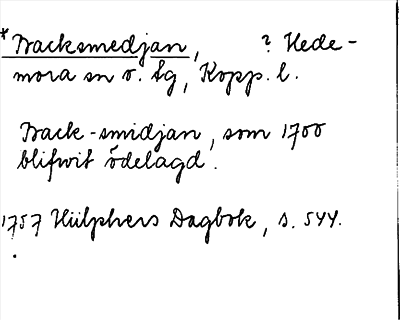 *Backsmedjan, ? Hede-
mora sn o. tg, Kopp. l.
Back-smidjan, som 1700
blifwit ödelagd.
1757 Hülphers Dagbok, s. 544.